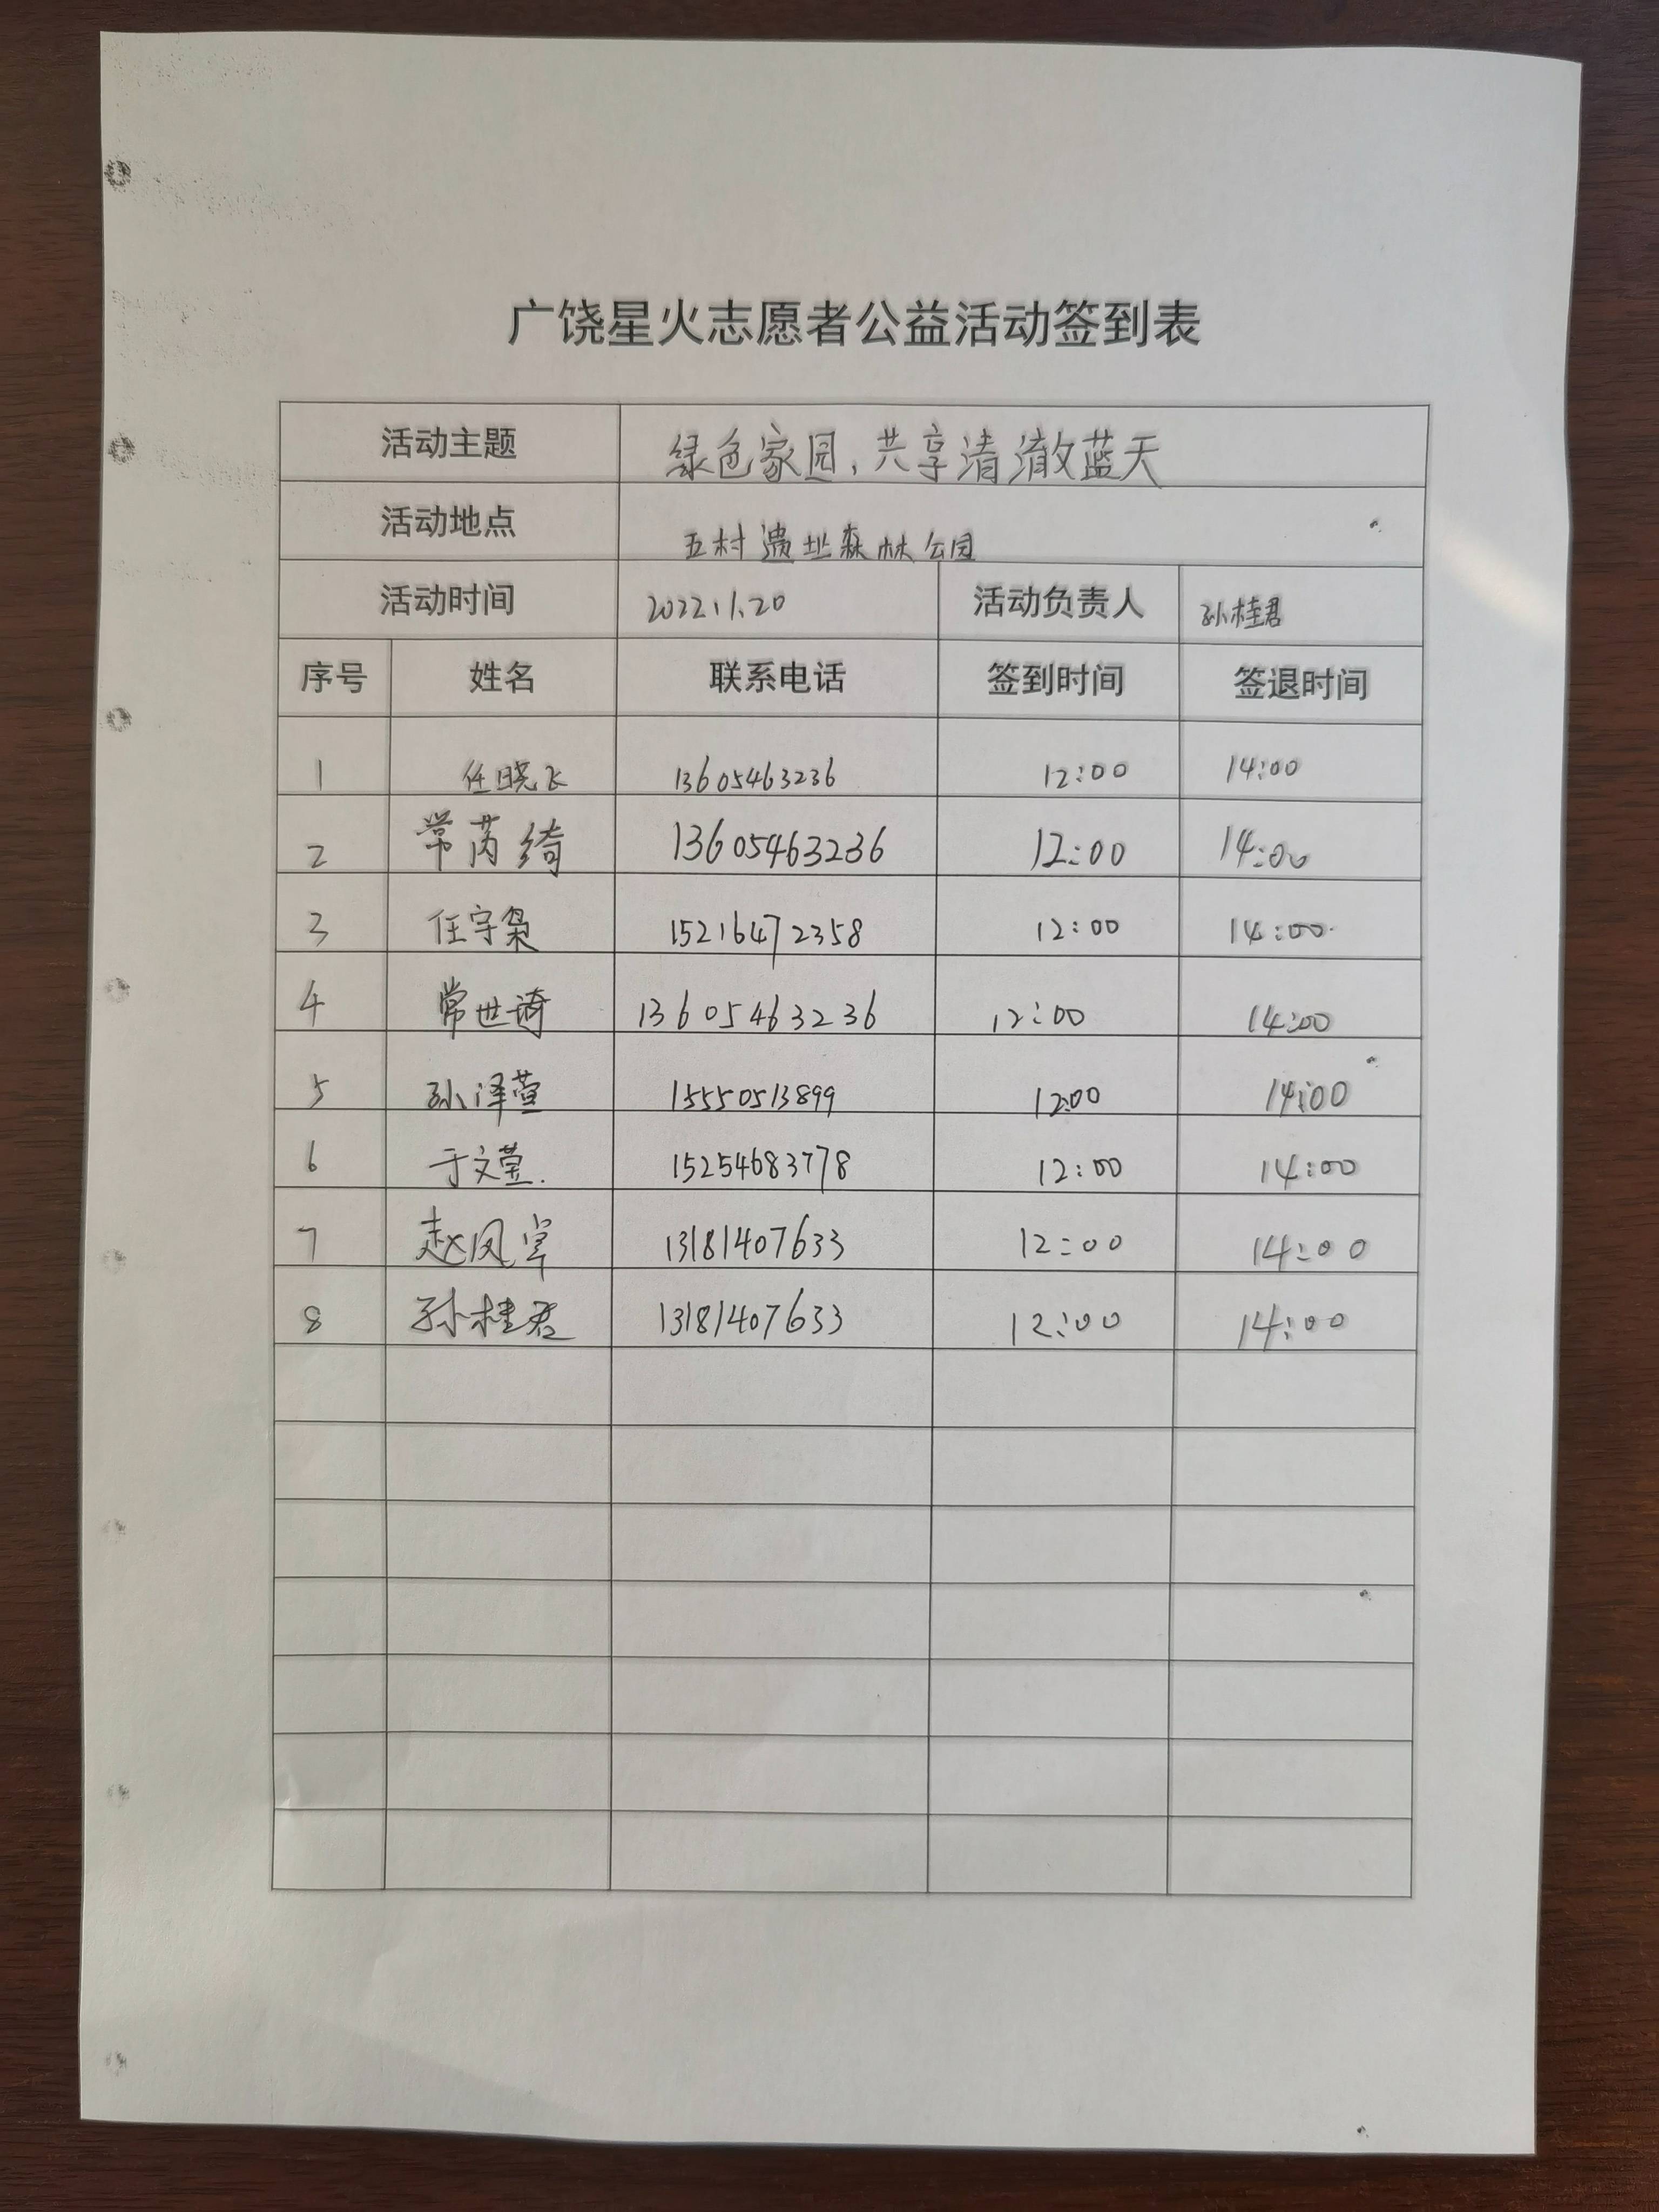 广饶星火志愿者公益活动签到表
活动主题 绿色家园、共享清澈蓝天
活动地点 五村遗址森林公园
活动时间 2022.1.20 活动负责人 孙桂君
序号 姓名 联系电话 签到时间 签退时间
1 任晓飞 13605463236 12:00 14:00
2 常芮绮 13605463236 12:00 14:00
3 任宇枭 15216472358 12:00 14:00
4 常世琦 13605463236 12:00 14:00
5 孙泽萱 15550513899 12:00 14:00
6 于文莹 15254683778 12:00 14:00
7 赵凤卓 13181407633 12:00 14:00
8 孙桂君 13181407633 12:00 14:00